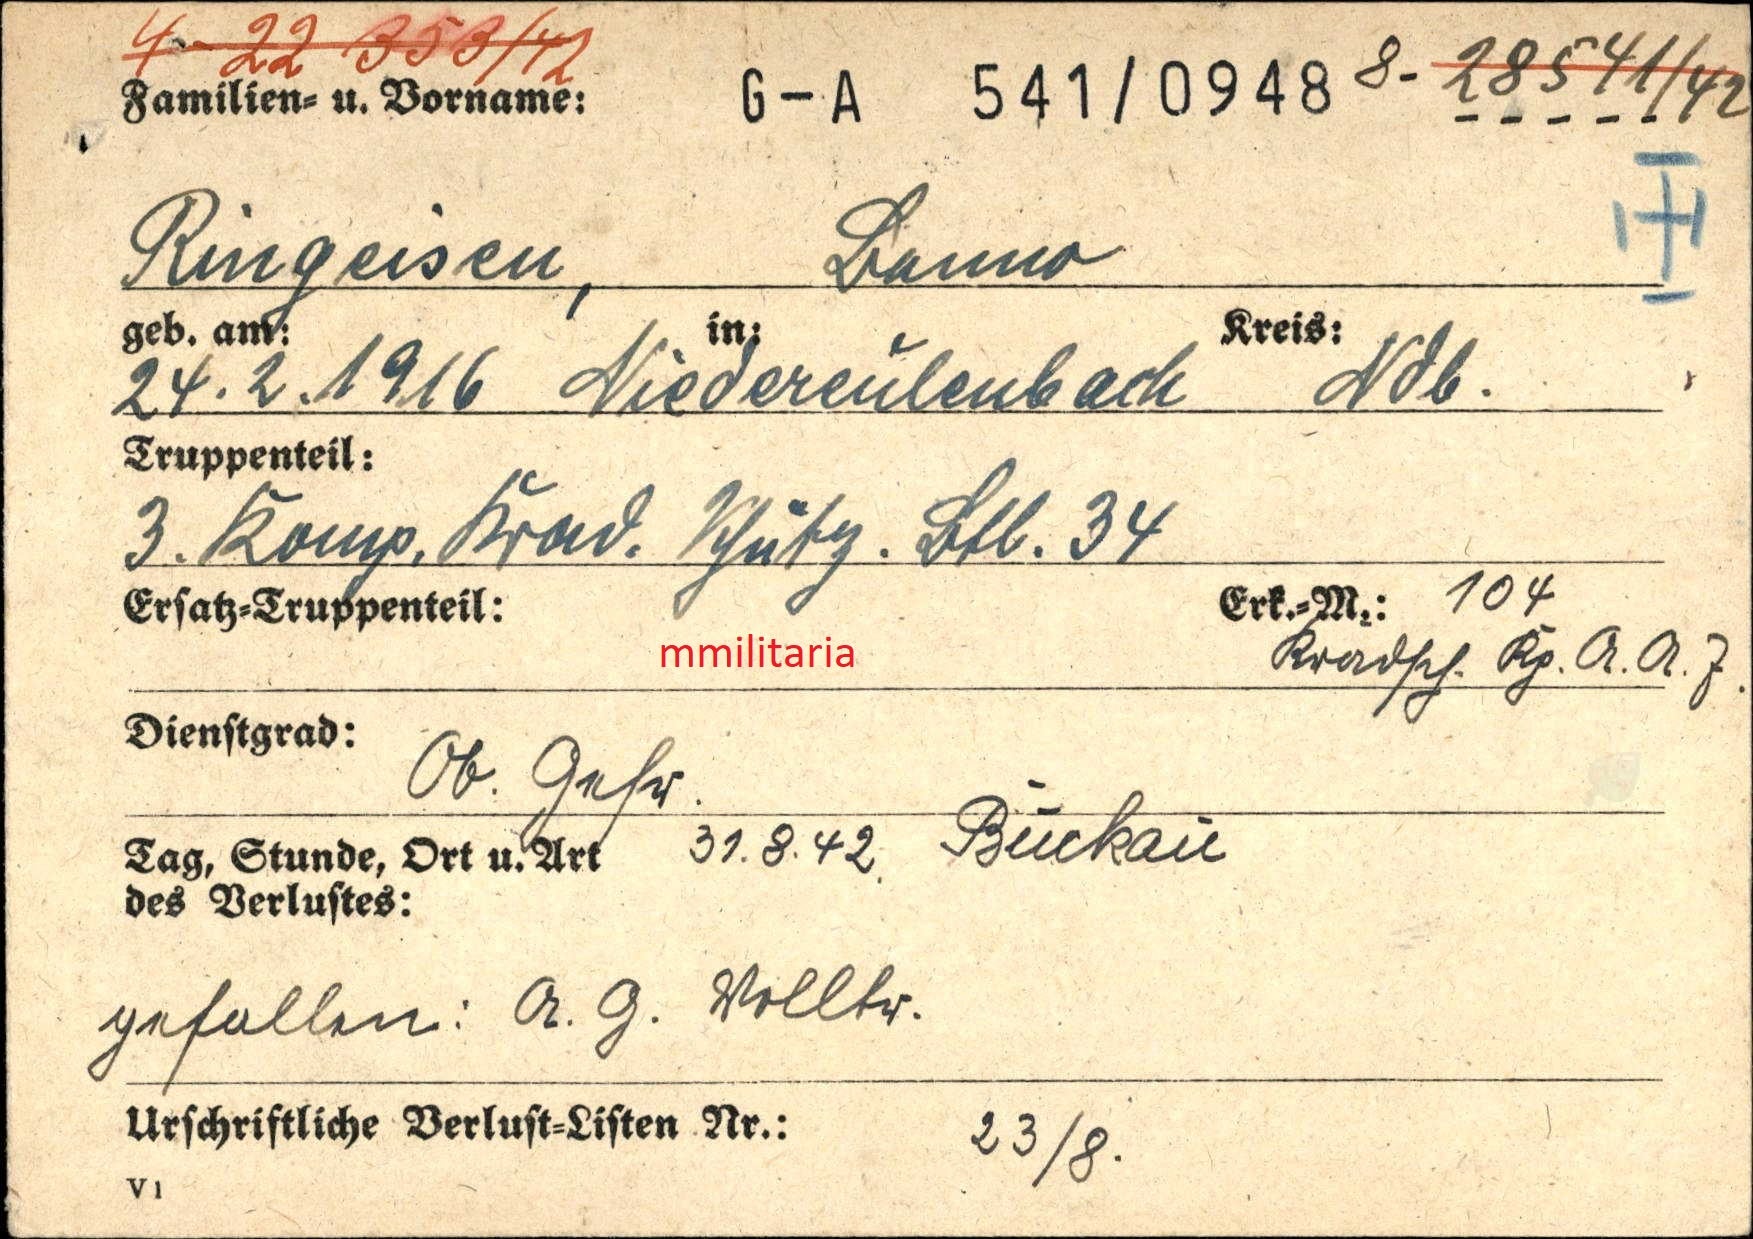 4-22 353/42
Familien- u. Vorname: G-A 541/0948 8-28541/42
Ringeisen, Benno
geb. am: in: Kreis:
24.2.1916 Niedereulenbach Ndb.
Truppenteil:
3. Komp. Krad. Schütz. Btl. 34
Ersatz-Truppenteil: Erk.-M.: 104
Kradsch. Kp. A. A. 7.
mmilitaria
Dienstgrad:
Ob. Gefr.
Tag, Stunde, Ort u. Art 31.8.42. Buckau
des Verlustes:
gefallen: A. G. Volltr.
Urschriftliche Verlust-Listen Nr.: 23/8.
V1